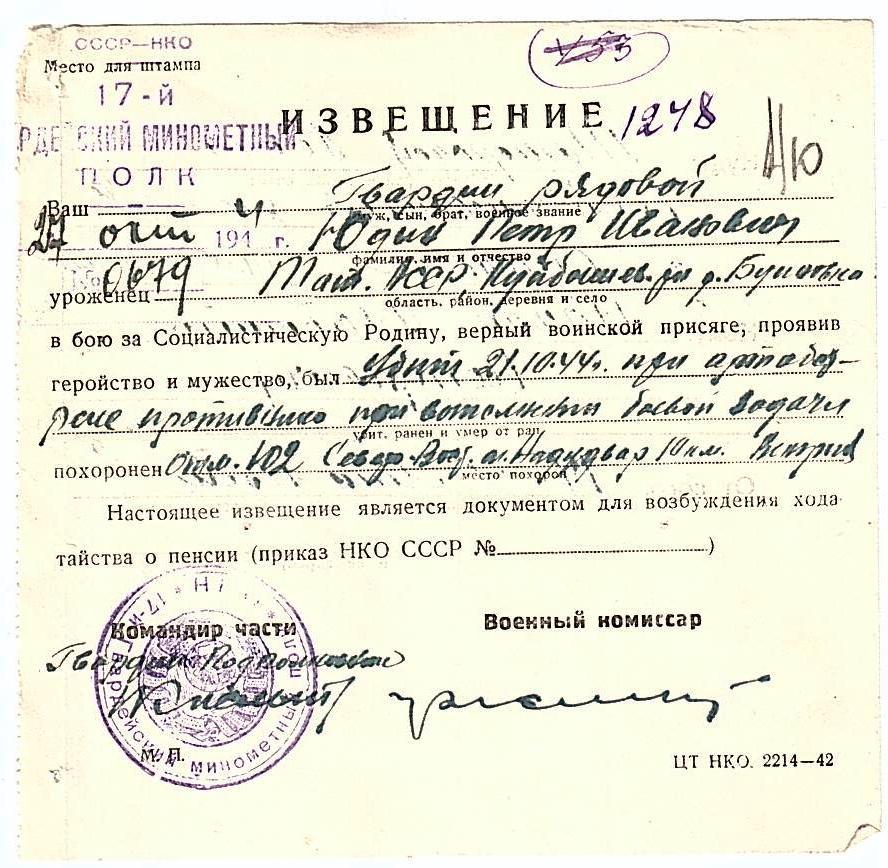 СССР—НКО
Место для штампа
17-й
РДЕ СКИЙ МИНОМЕТНЫЙ
ПОЛК
V53
ИЗВЕЩЕНИЕ 1248
Ваш Гвардии рядовой
муж, сын, брат, военное звание
27 окт 1944 г. Юдин Петр Иванович
фамилия, имя и отчество
№ 0679
уроженец Тат. АССР Куйбышев. р-н д.
область, район, деревня и село
в бою за Социалистическую Родину, верный воинской присяге, проявив
геройство и мужество, был Убит 21.10.44г. при артобст-
реле противника при выполнении боевой задачи
убит, ранен и умер от ран
похоронен отм. 102 Северо-Вост. 10 км. Венгрия
место похорон
Настоящее извещение является документом для возбуждения хода
тайства о пенсии (приказ НКО СССР № )
Командир части
Военный комиссар
Гвардии Подполковник
М. П.
17-й Гвардейский минометный полк * НКО *
ЦТ НКО. 2214—42